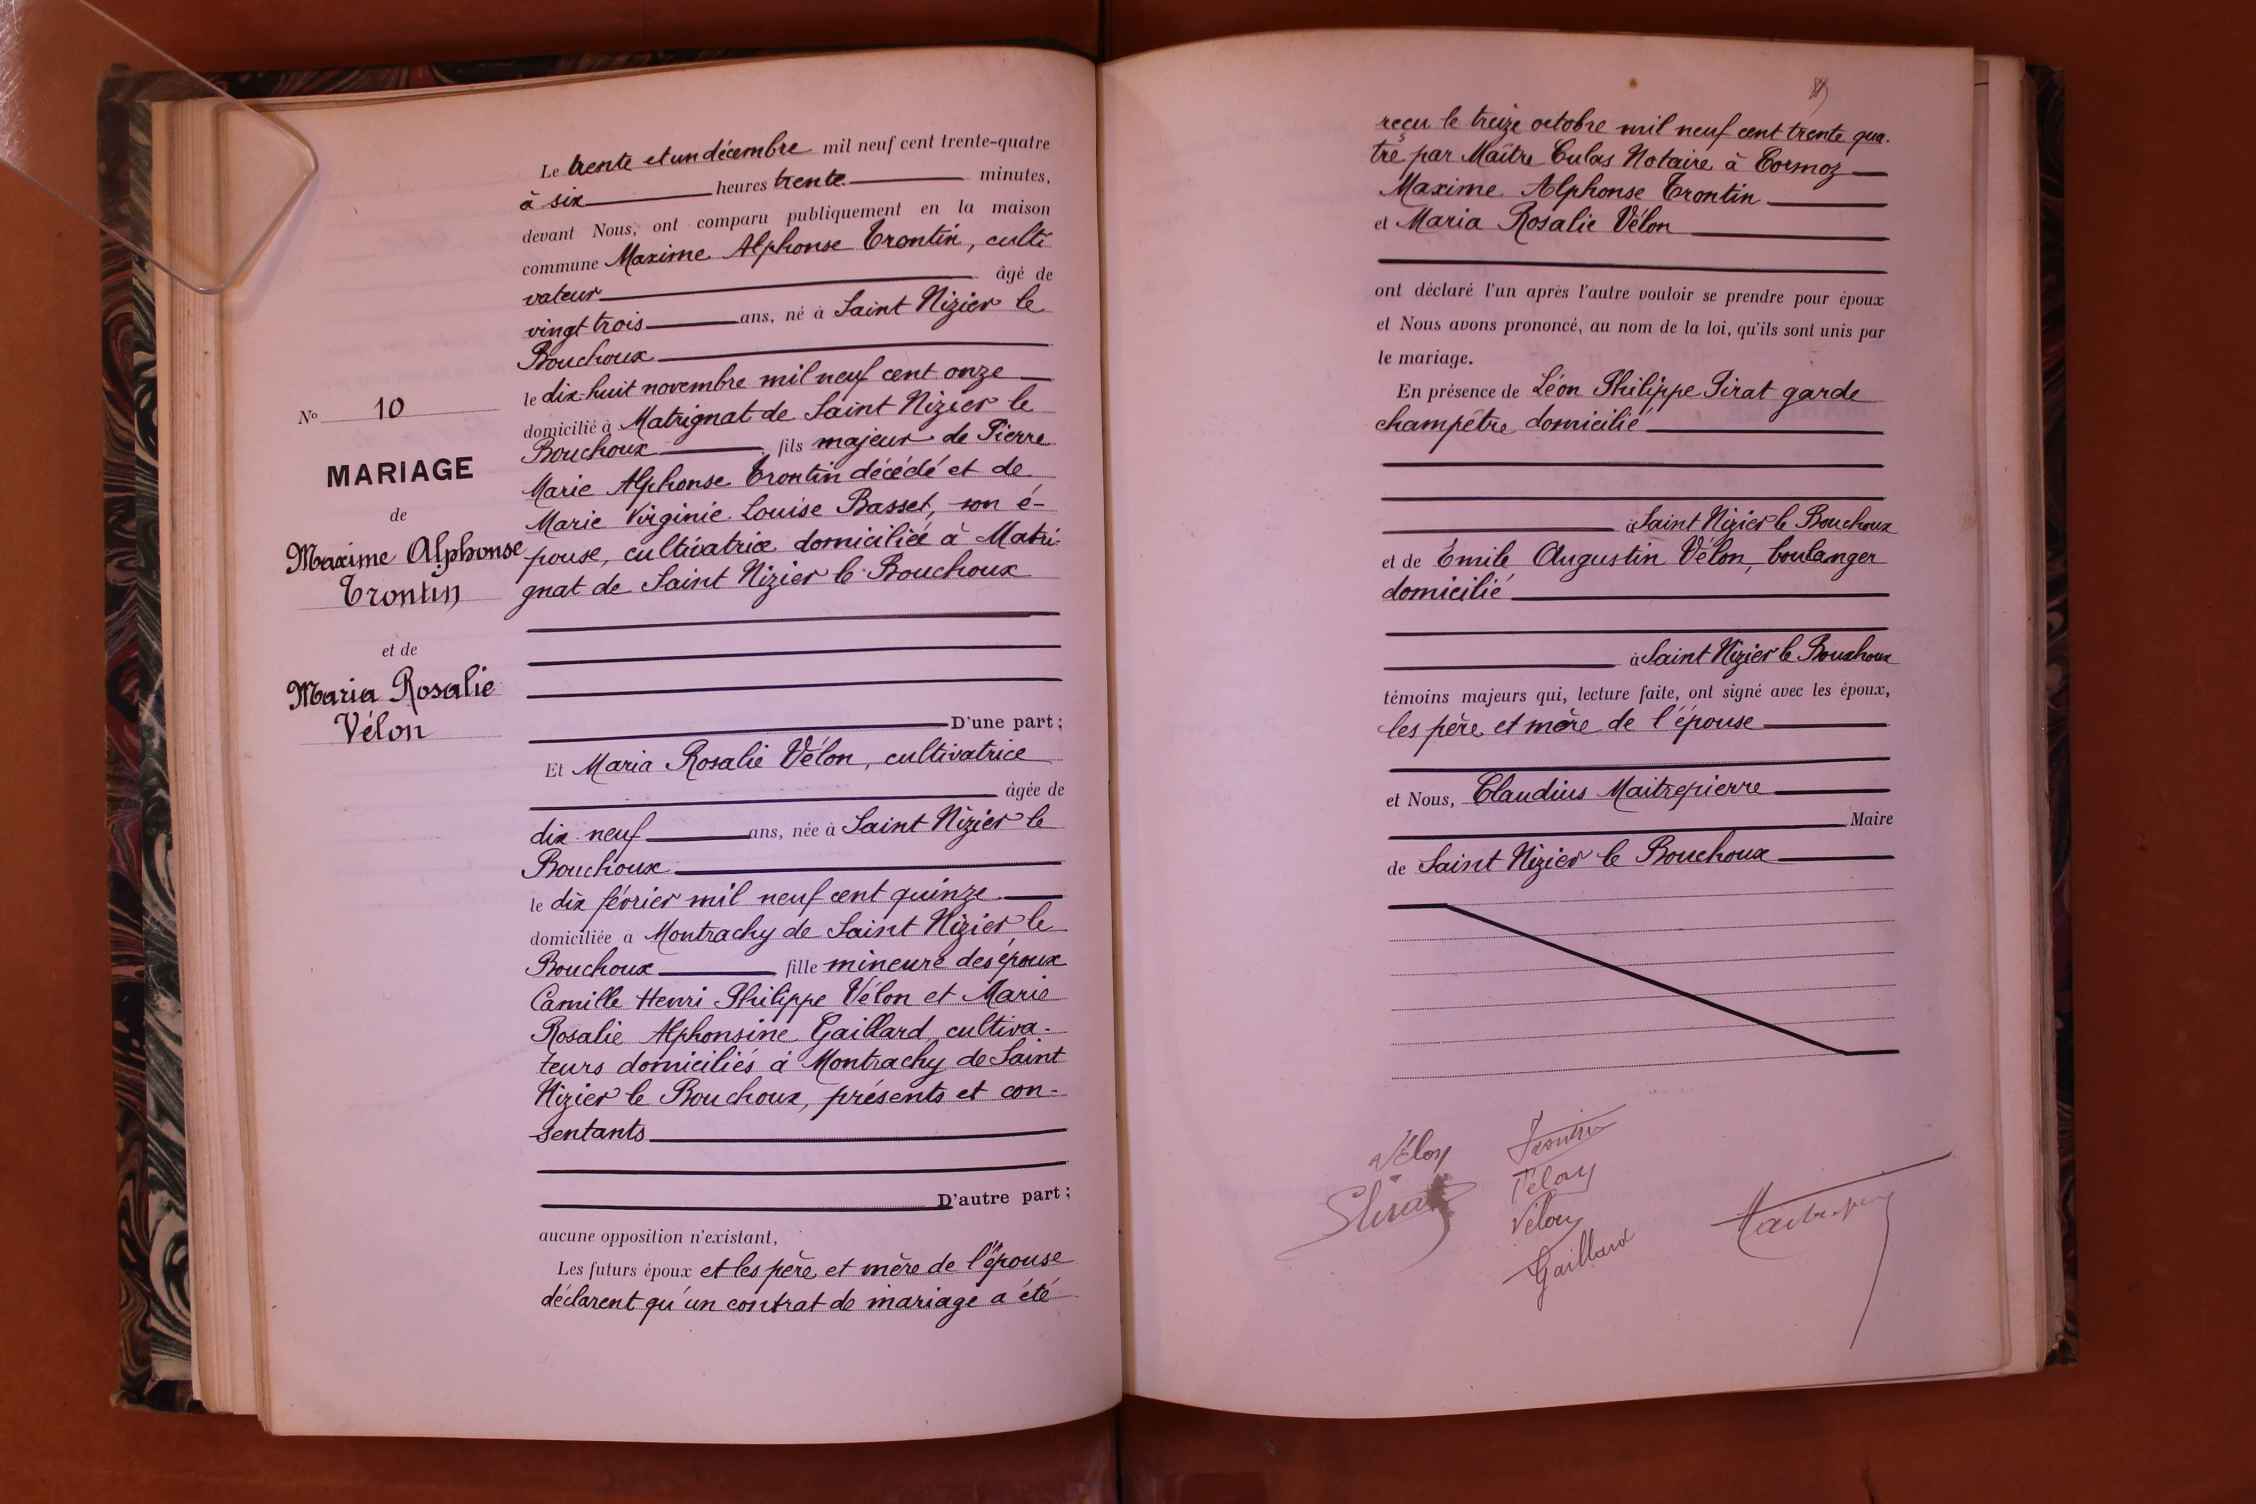 N° 10
MARIAGE
de
Maxime Alphonse
Trontin
et de
Maria Rosalie
Vélon
Le trente et un décembre mil neuf cent trente-quatre
à six heures trente minutes,
devant Nous, ont comparu publiquement en la maison
commune Maxime Alphonse Trontin, culti
vateur âgé de
vingt trois ans, né à Saint Nizier le
Bouchoux
le dix-huit novembre mil neuf cent onze
domicilié à Matrignat de Saint Nizier le
Bouchoux fils majeur de Pierre
Marie Alphonse Trontin décédé et de
Marie Virginie Louise Basset, son é-
pouse, cultivatrice domiciliée à Matri-
gnat de Saint Nizier le Bouchoux
D'une part ;
Et Maria Rosalie Vélon, cultivatrice
âgée de
dix-neuf ans, née à Saint Nizier le
Bouchoux
le dix février mil neuf cent quinze
domiciliée à Montrachy de Saint Nizier le
Bouchoux fille mineure des époux
Camille Henri Philippe Vélon et Marie
Rosalie Alphonsine Gaillard, cultiva-
teurs domiciliés à Montrachy de Saint
Nizier le Bouchoux, présents et con-
sentants
D'autre part ;
aucune opposition n'existant,
Les futurs époux et les père et mère de l'épouse
déclarent qu'un contrat de mariage a été
reçu le treize octobre mil neuf cent trente qua-
tre par Maître Culas Notaire à Cormoz
Maxime Alphonse Trontin
et Maria Rosalie Vélon
ont déclaré l'un après l'autre vouloir se prendre pour époux
et Nous avons prononcé, au nom de la loi, qu'ils sont unis par
le mariage.
En présence de Léon Philippe Pirat garde
champêtre domicilié
à Saint Nizier le Bouchoux
et de Emile Augustin Vélon, boulanger
domicilié
à Saint Nizier le Bouchoux
témoins majeurs qui, lecture faite, ont signé avec les époux,
les père et mère de l'épouse
et Nous, Claudius Maitrepierre
Maire
de Saint Nizier le Bouchoux
Vélon Trontin
Pirat Vélon
Vélon
Gaillard